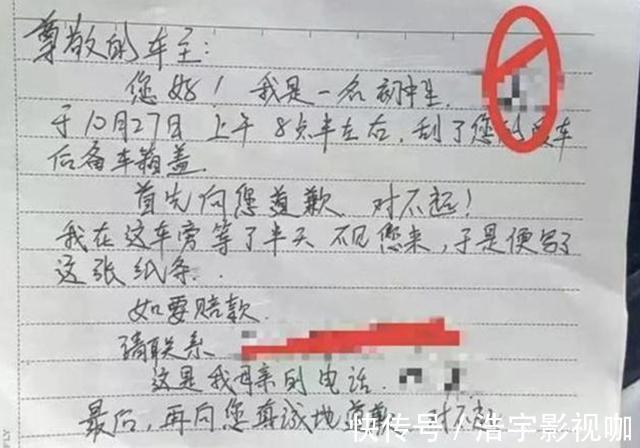 尊敬的车主：
您好！我是一名初中生
于10月27日上午8点半左右，刮了您的车
后备车箱盖
首先向您道歉 对不起！
我在这车旁等了半天 不见您来，于是便写了
这张纸条．
如要赔款
请联系
这是我母亲的电话．
最后，再向您真诚地道歉
快传号／浩宇影视咖